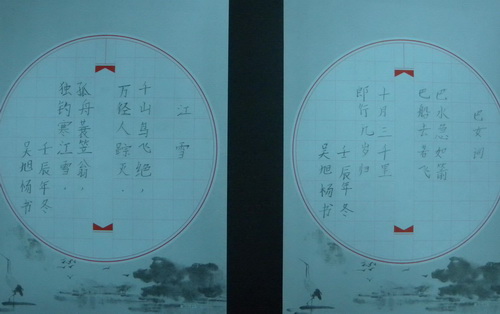 江雪
千山鸟飞绝，
万径人踪灭。
孤舟蓑笠翁，
独钓寒江雪。
壬辰年冬
吴旭杨书
巴女词
巴水急如箭
巴船去若飞
十月三千里
郎行几岁归
壬辰年冬
吴旭杨书